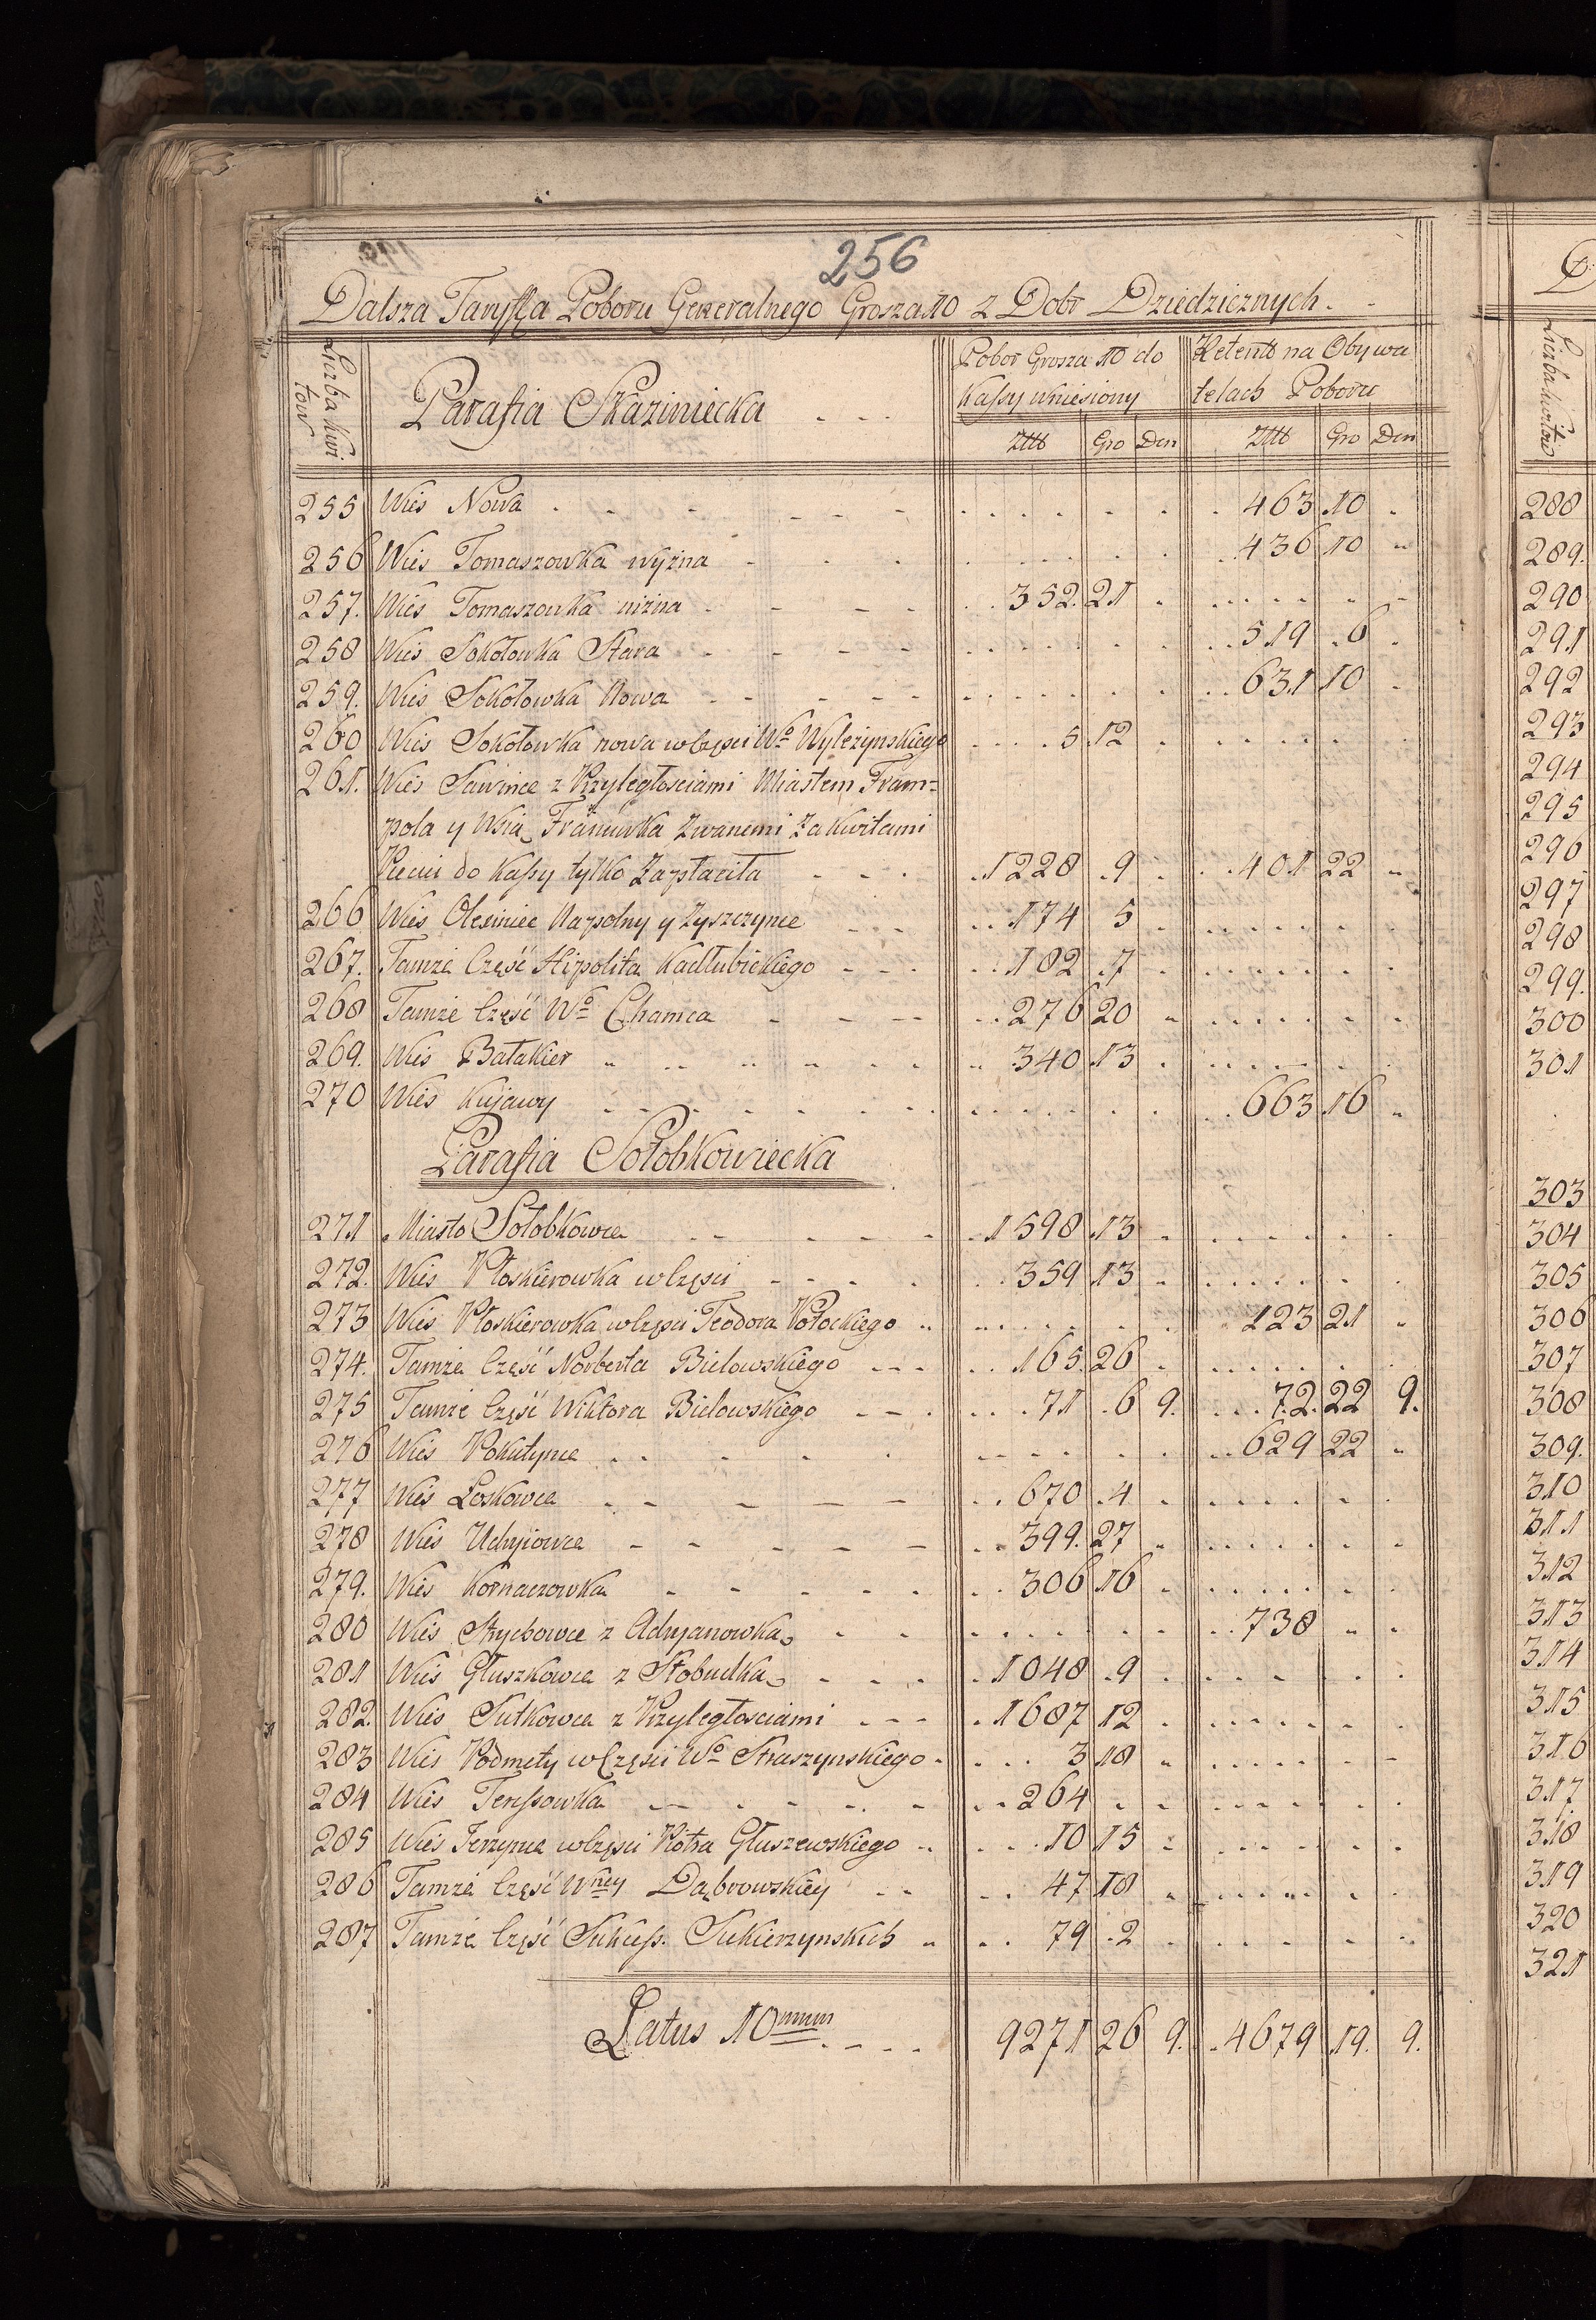 256
Dalsza Taryffa Poboru Generalnego Grosza 10 z Dobr Dziedzicznych.
Liczba kwitow
Parafia Skaziniecka
Pobor Grosza 10 do Kassy wniesiony
Retenta na Obywatelach Poboru
Złtt Gro Den Złtt Gro Den
255 Wies Nowa 463 10
256 Wies Tomaszowka wyzna 436 10
257. Wies Tomaszowka nizna 352. 21
258 Wies Sokołowka Stara 519 6
259. Wies Sokołowka Nowa 631 10
260 Wies Sokołowka nowa w części Wo Wyleżynskiego 5 12
261. Wies Sawince z Przyległosciami Miastem Fram=
pola y Wsią Franuwka zwanemi za kwitami
Pieciu do Kassy tylko Zapłaciła 1228 9 401 22
266 Wies Olesiniec Napolny y Zyszczynce 174 5
267. Tamze Część Hipolita Kadłubickiego 182 7
268 Tamze Część Wo Chamca 276 20
269. Wies Bałakier 340 13
270 Wies Kujawy 663 16
Parafia Sołobkowiecka
271 Miasto Sołobkowce 1598 13
272. Wies Płoskierowka w części 359 13
273 Wies Płoskierowka w części Teodora Połockiego 123 21
274. Tamze Część Norberta Bielowskiego 165. 26
275 Tamze Część Wiktora Bielowskiego 71 6 9. 72. 22 9.
276 Wies Pokutynce 629 22
277 Wies Loskowce 670 4
278 Wies Udryiowce 399. 27
279. Wies Kornaczowka 306 16
280 Wies Strychowce z Adryanowką 738
281 Wies Głuszkowce z Słobudką 1048 9
282. Wies Sutkowce z Przyległosciami 1687 12
283 Wies Podmety w Części Wo Straszynskiego 3 18
284 Wies Teressowka 264
285 Wies Jerzynce w części Piotra Głuszewskiego 10 15
286 Tamze Część Wney Dąbrowskiey 47 18
287 Tamze Część Sukcess. Siekierzynskich 79 2
Latus 10mum 9271 26 9. 4679 19. 9.
Liczba kwitow
288
289.
290
291
292
293
294
295
296
297
298
299.
300
301
303
304
305
306
307
308
309.
310
311
312
313
314
315
316
317
318
319
320
321